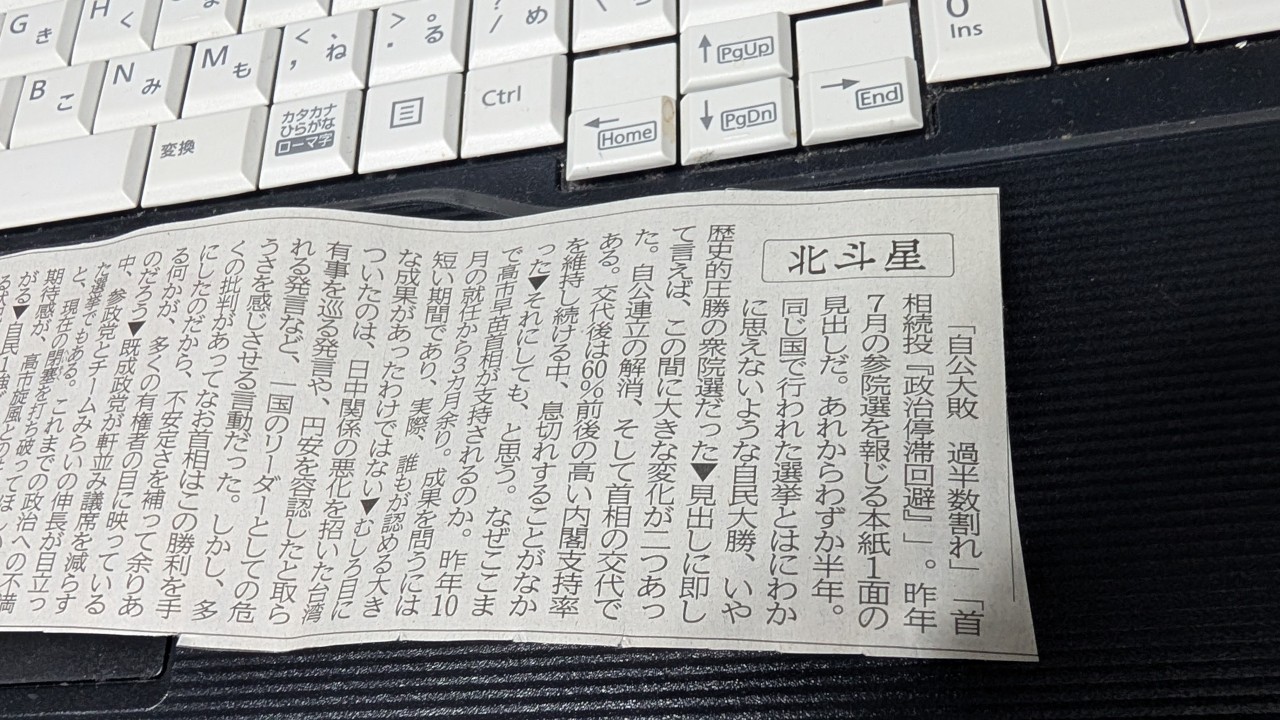 G き
H く
> 。
. る
?
/ め
M も
< 、
, ね
N み
B こ
変換
カタカナ
ひらがな
ローマ字
Ctrl
↑ PgUp
← Home
↓ PgDn
→ End
0
Ins
北斗星
「自公大敗 過半数割れ」「首
相続投『政治停滞回避』」。昨年
7月の参院選を報じる本紙1面の
見出しだ。あれからわずか半年。
同じ国で行われた選挙とはにわか
に思えないような自民大勝、いや
歴史的圧勝の衆院選だった▼見出しに即し
て言えば、この間に大きな変化が二つあっ
た。自公連立の解消、そして首相の交代で
ある。交代後は60%前後の高い内閣支持率
を維持し続ける中、息切れすることがなか
った▼それにしても、と思う。なぜここま
で高市早苗首相が支持されるのか。昨年10
月の就任から3カ月余り。成果を問うには
短い期間であり、実際、誰もが認める大き
な成果があったわけではない▼むしろ目に
ついたのは、日中関係の悪化を招いた台湾
有事を巡る発言や、円安を容認したと取ら
れる発言など、一国のリーダーとしての危
うさを感じさせる言動だった。しかし、多
くの批判があってなお首相はこの勝利を手
にしたのだから、不安定さを補って余りあ
る何かが、多くの有権者の目に映っている
のだろう▼既成政党が軒並み議席を減らす
中、参政党とチームみらいの伸長が目立っ
た選挙でもある。これまでの政治への不満
と、現在の閉塞を打ち破ってほしい
期待感が、高市旋風と
がる▼自民1強